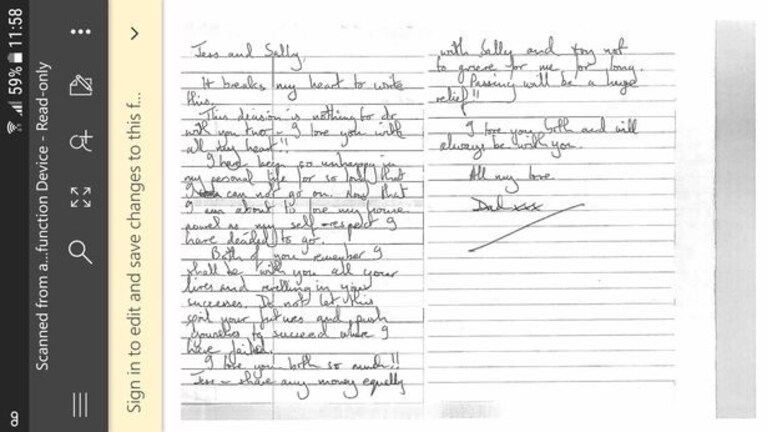 11:58
59%
Scanned from a...function Device - Read-only
Sign in to edit and save changes to this f...
Jess and Sally,
It breaks my heart to write
this.
This decision is nothing to do
with you two - I love you with
all my heart!!
I have been so unhappy in
my personal life for so long that
I can not go on. Now that
I am about to lose my house
as my self-respect I
have decided to go.
Both of you remember I
shall be with you all your
lives and revelling in your
successes. Do not let this
spoil your futures and push
yourselves to succeed where I
have failed.
I love you both so much!!
Jess - share any money equally
with Sally and try not
to grieve for me for long.
Passing will be a huge
relief!!
I love you both and will
always be with you.
All my love
Dad xxx